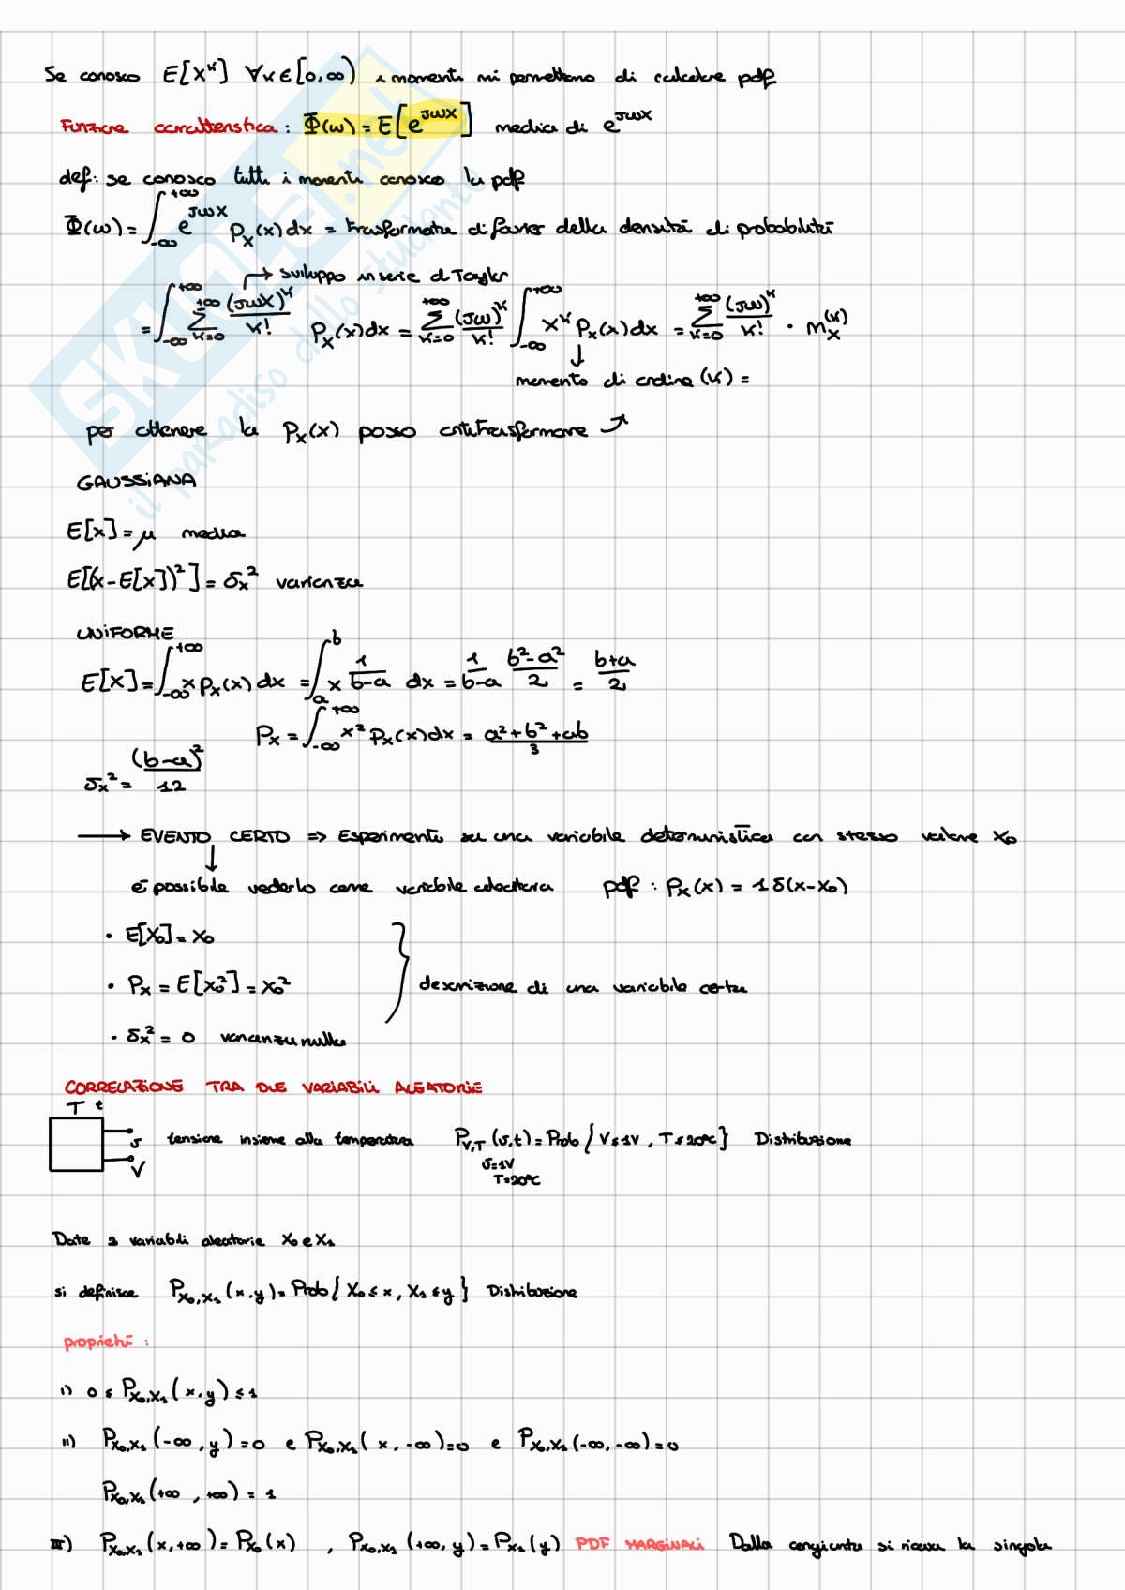 Se conosco E[X^k] ∀k∈[0,∞) i momenti mi permettono di calcolare pdf
Funzione caratteristica: Φ(ω) = E[e^{jωx}] media di e^{jωx}
def: se conosco tutti i momenti conosco la pdf
Φ(ω) = ∫_{-∞}^{+∞} e^{jωx} p_x(x) dx = trasformata di fourier della densità di probabilità
→ sviluppo in serie di Taylor
= ∫_{-∞}^{+∞} Σ_{k=0}^{+∞} (jωx)^k/k! p_x(x)dx = Σ_{k=0}^{+∞} (jω)^k/k! ∫_{-∞}^{+∞} x^k p_x(x)dx = Σ_{k=0}^{+∞} (jω)^k/k! · m_x^{(k)}
↓
momento di ordine (k) =
per ottenere la p_x(x) posso antitrasformare ↗
GAUSSIANA
E[x] = μ media
E[(x-E[x])^2] = σ_x^2 varianza
UNIFORME
E[x] = ∫_{-∞}^{+∞} x p_x(x) dx = ∫_a^b x 1/(b-a) dx = 1/(b-a) (b^2-a^2)/2 = (b+a)/2
P_x = ∫_{-∞}^{+∞} x^2 p_x(x)dx = (a^2+b^2+ab)/3
σ_x^2 = (b-a)^2/12
→ EVENTO CERTO => Esperimenti su una variabile deterministica con stesso valore x_0
↓
è possibile vederlo come variabile aleatoria pdf: p_x(x) = 1δ(x-x_0)
· E[X_0] = x_0
· P_x = E[x_0^2] = x_0^2
} descrizione di una variabile certa
· σ_x^2 = 0 varianza nulla
CORRELAZIONE TRA DUE VARIABILI ALEATORIE
T t
v tensione insieme alla temperatura P_{V,T}(v,t) = Prob{V≤1V, T≤20°C} Distribuzione
V
v=1V
T=20°C
Date 2 variabili aleatorie X_0 e X_1
si definisce P_{X_0,X_1}(x,y) = Prob{X_0≤x, X_1≤y} Distribuzione
proprietà:
i) 0 ≤ P_{X_0,X_1}(x,y) ≤ 1
ii) P_{X_0,X_1}(-∞,y)=0 e P_{X_0,X_1}(x,-∞)=0 e P_{X_0,X_1}(-∞,-∞)=0
P_{X_0,X_1}(+∞,+∞) = 1
iii) P_{X_0,X_1}(x,+∞) = P_{X_0}(x) , P_{X_0,X_1}(+∞,y) = P_{X_1}(y) PDF MARGINALI Dalla congiunta si ricava la singola
SKUOLA.net
il paradiso dello studente